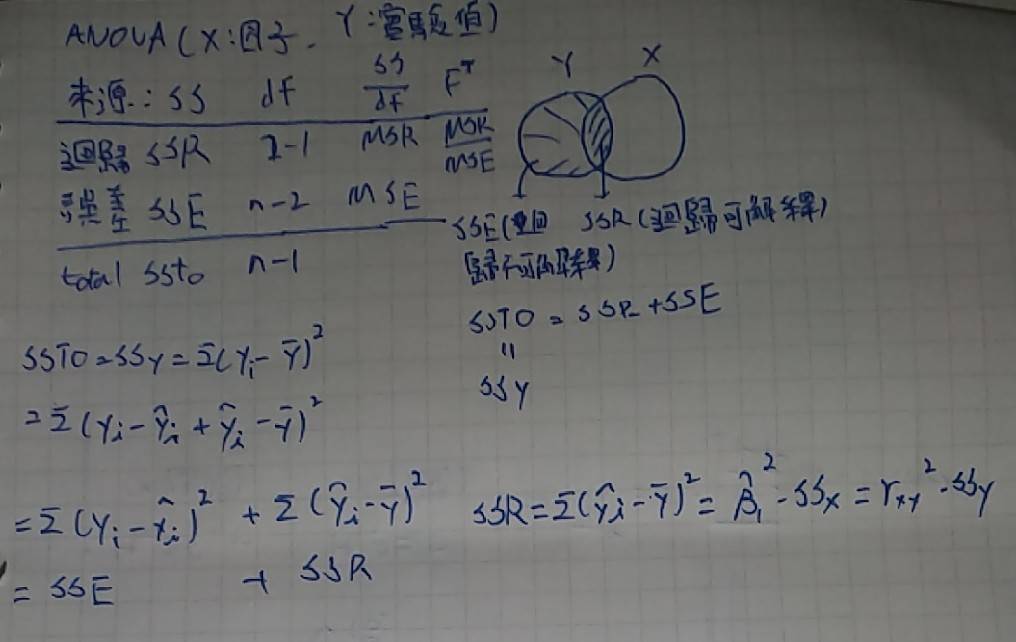 ANOVA (X:因子. Y:實驗值)
來源: SS df SS/df F*
迴歸 SSR 2-1 MSR MSR/MSE
誤差 SSE n-2 MSE
total SSto n-1
Y X
SSE(迴歸不可解釋) SSR(迴歸可解釋)
SSTO = SSR + SSE
=
SSY
SSTO = SSY = Σ(Yi - Ȳ)²
= Σ(Yi - Ŷi + Ŷi - Ȳ)²
= Σ(Yi - Ŷi)² + Σ(Ŷi - Ȳ)²
= SSE + SSR
SSR = Σ(Ŷi - Ȳ)² = β̂₁² · SSX = rxy² · SSY